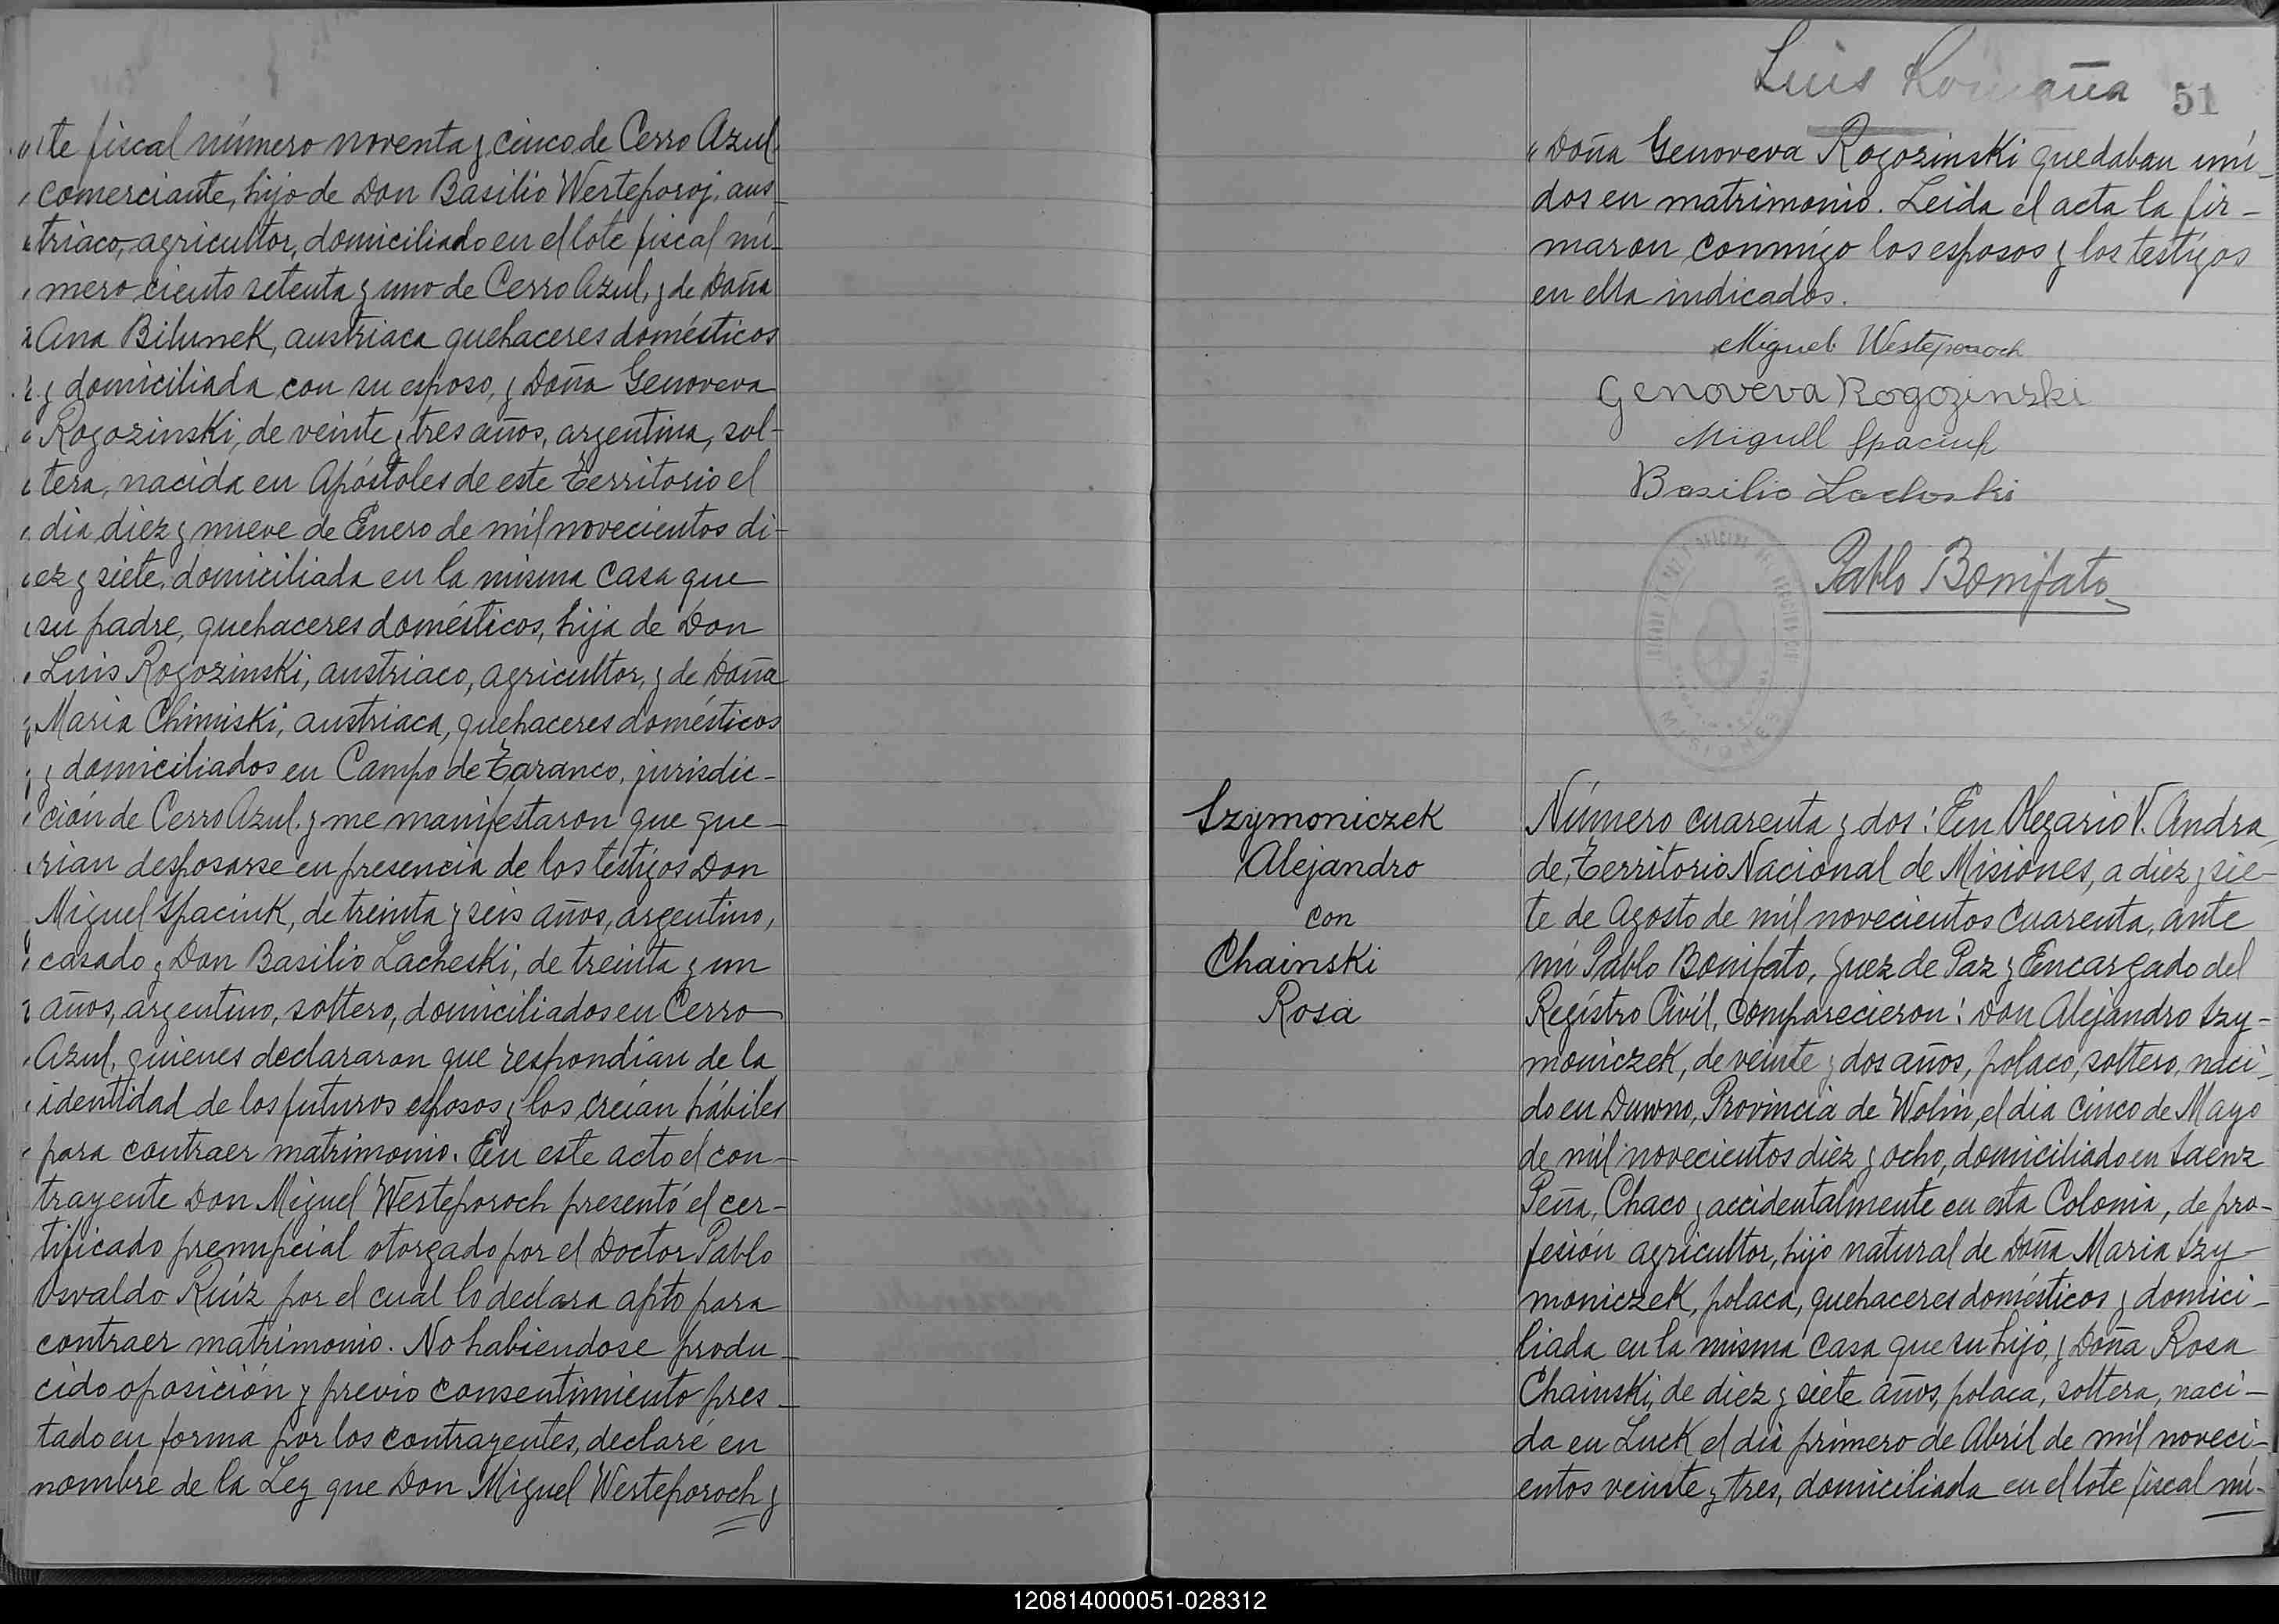 te fiscal número noventa y cinco de Cerro Azul,
comerciante, hijo de Don Basilio Westeporoj, aus-
triaco, agricultor, domiciliado en el lote fiscal nú-
mero ciento setenta y uno de Cerro Azul, y de Doña
Ana Bilunek, austriaca quehaceres domésticos
y domiciliada con su esposo, y Doña Genoveva
Rogozinski, de veinte y tres años, argentina, sol-
tera, nacida en Apóstoles de este Territorio el
dia diez y nueve de Enero de mil novecientos di-
ez y siete, domiciliada en la misma casa que
su padre, quehaceres domésticos, hija de Don
Luis Rogozinski, austriaco, agricultor, y de Doña
Maria Chimiski, austriaca, quehaceres domésticos
y domiciliados en Campo de Taranco, jurisdic-
ción de Cerro Azul, y me manifestaron que que-
rian desposarse en presencia de los testigos Don
Miguel Spaciuk, de treinta y seis años, argentino,
casado y Don Basilio Lacheski, de treinta y un
años, argentino, soltero, domiciliados en Cerro
Azul, quienes declararon que respondían de la
identidad de los futuros esposos y los creían hábiles
para contraer matrimonio. En este acto el con-
trayente Don Miguel Westeporoch presentó el cer-
tificado prenupcial otorgado por el Doctor Pablo
Osvaldo Ruíz por el cual lo declara apto para
contraer matrimonio. No habiendose produ-
cido oposición y previo consentimiento pres-
tado en forma por los contrayentes, declaré en
nombre de la Ley que Don Miguel Westeporoch y
Luis Romaña 51
Doña Genoveva Rogozinski quedaban uni-
dos en matrimonio. Leida el acta la fir-
maron conmigo los esposos y los testigos
en ella indicados.
Miguel Westeporoch
Genoveva Rogozinski
Miguel Spaciuk
Basilio Lacheski
Pablo Bonifato
MISIONES
Szymoniczek
Alejandro
con
Chainski
Rosa
Número cuarenta y dos: En Olegario V. Andra-
de, Territorio Nacional de Misiones, a diez y sie-
te de Agosto de mil novecientos cuarenta, ante
mi Pablo Bonifato, Juez de Paz y Encargado del
Regístro Civíl, comparecieron: Don Alejandro Szy-
moniczek, de veinte y dos años, polaco, soltero, naci-
do en Duwno, Provincia de Wolin, el dia cinco de Mayo
de mil novecientos diez y ocho, domiciliado en Saenz
Peña, Chaco y accidentalmente en esta Colonia, de pro-
fesión agricultor, hijo natural de Doña Maria Szy-
moniczek, polaca, quehaceres domésticos y domici-
liada en la misma casa que su hijo, y Doña Rosa
Chainski, de diez y siete años, polaca, soltera, naci-
da en Luck el dia primero de Abril de mil noveci-
entos veinte y tres, domiciliada en el lote fiscal nú-
120814000051-028312